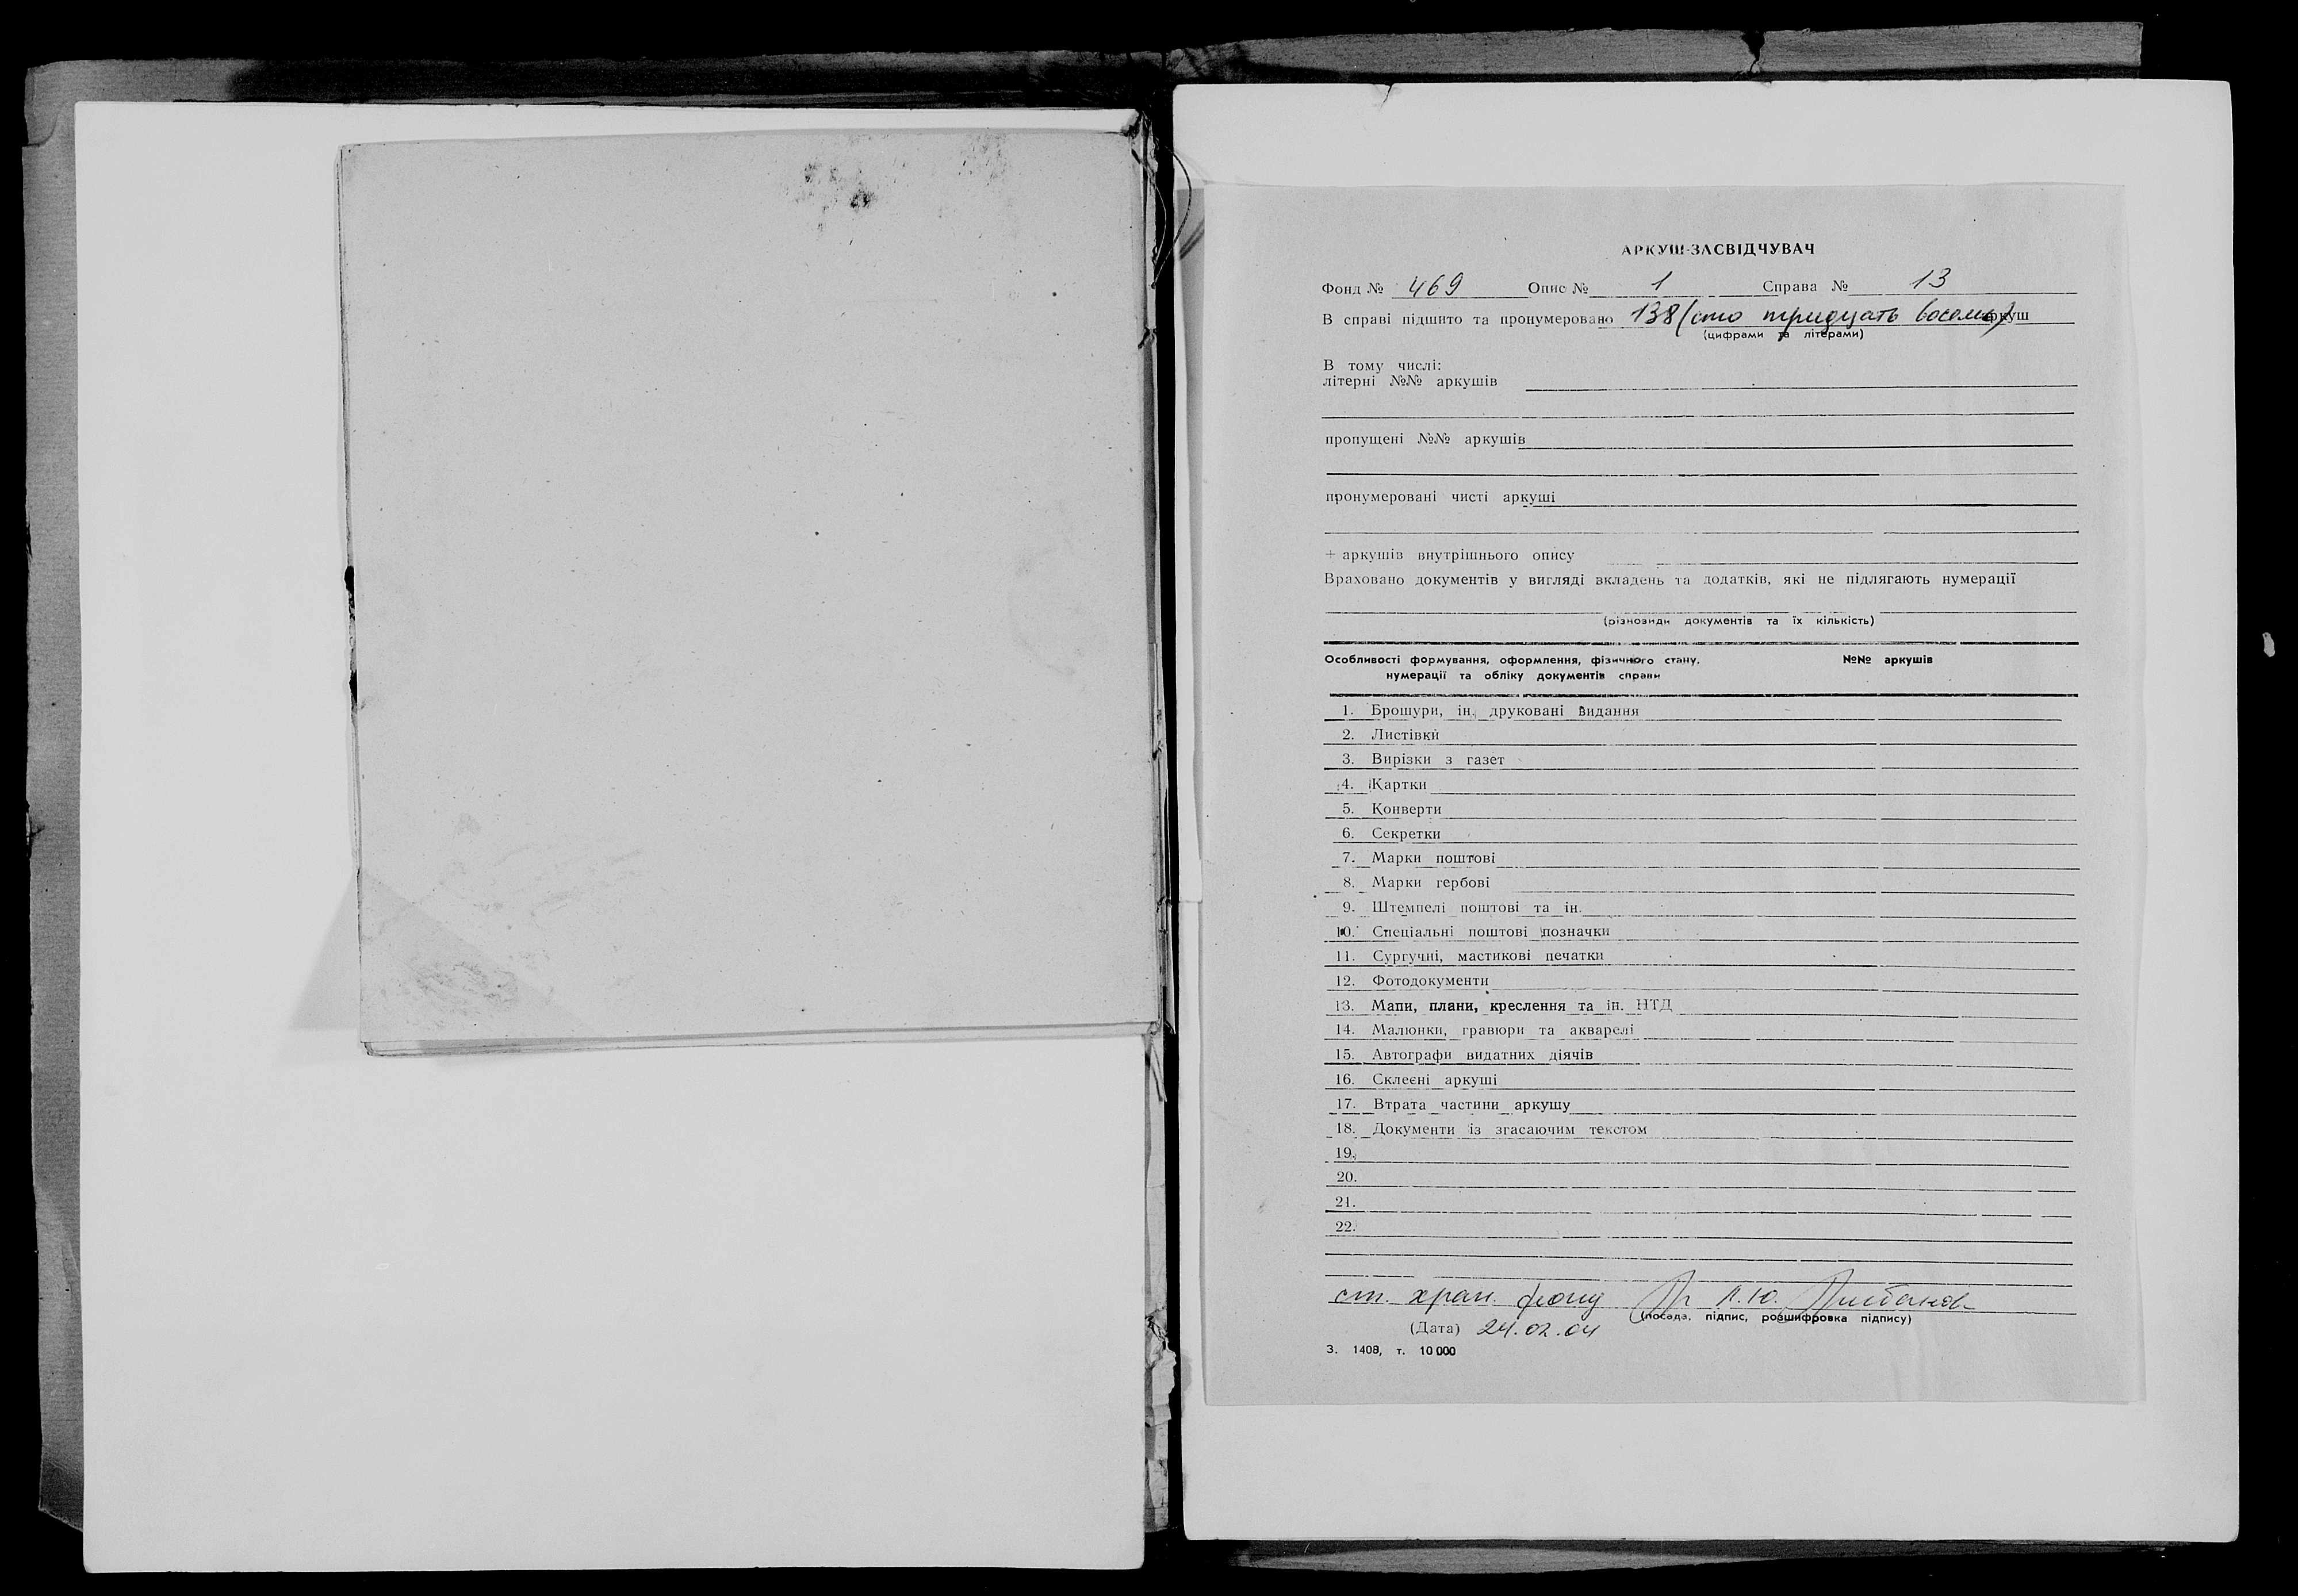 АРКУШ-ЗАСВІДЧУВАЧ
Фонд № 469 Опис № 1 Справа № 13
В справі підшито та пронумеровано 138 (сто тридцать восемь) аркуш
(цифрами та літерами)
В тому числі:
літерні №№ аркушів
пропущені №№ аркушів
пронумеровані чисті аркуші
+ аркушів внутрішнього опису
Враховано документів у вигляді вкладень та додатків, які не підлягають нумерації
(різновиди документів та їх кількість)
Особливості формування, оформлення, фізичного стану, №№ аркушів
нумерації та обліку документів справи
1. Брошури, ін. друковані видання
2. Листівки
3. Вирізки з газет
4. Картки
5. Конверти
6. Секретки
7. Марки поштові
8. Марки гербові
9. Штемпелі поштові та ін.
10. Спеціальні поштові позначки
11. Сургучні, мастикові печатки
12. Фотодокументи
13. Мапи, плани, креслення та ін. НТД
14. Малюнки, гравюри та акварелі
15. Автографи видатних діячів
16. Склеєні аркуші
17. Втрата частини аркушу
18. Документи із згасаючим текстом
19.
20.
21.
22.
ст. хран. фонд
(посада, підпис, розшифровка підпису)
(Дата) 24.02.04
З. 1408, т. 10 000